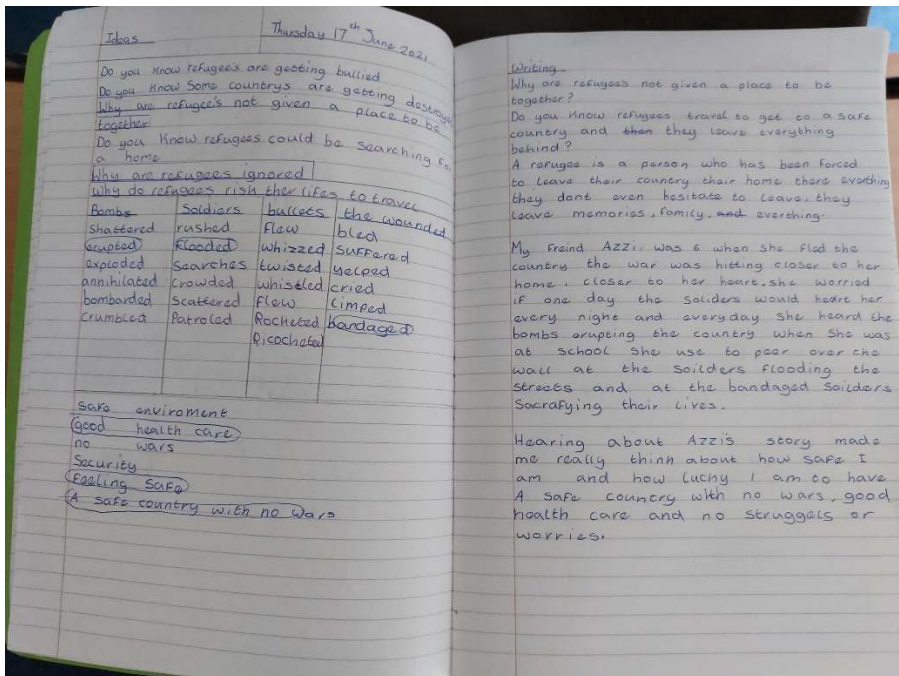 Ideas
Thursday 17th June 2021
Do you know refugee's are getting bullied
Do you know Some countrys are getting destroyed
Why are refugee's not given a place to be
together
Do you know refugees could be searching for
a home
Why are refugees ignored
Why do refugees risk ther lifes to travel
Bombs Soldiers bullets the wounded
Shattered rushed flew bled
erupted flooded whizzed suffered
exploded searches twisted yelped
annihilated crowded whistled cried
bombarded scattered flew limped
crumbled Patroled Rocheted bandaged
Ricocheted
safe enviroment
good health care
no wars
Security
Feeling Safe
A safe country with no wars
Writing
Why are refugees not given a place to be
together?
Do you know refugees travel to get to a safe
country and then they leave everything
behind?
A refugee is a person who has been forced
to leave their country their home there everthing
they dont even hesitate to leave. they
leave memories, family, and everthing.
My freind Azzi was 6 when she fled the
country the war was hitting closer to her
home, closer to her heart. she worried
if one day the soliders would heare her
every night and everyday she heard the
bombs erupting the country when she was
at school she use to peer over the
wall at the Soilders flooding the
streets and at the bandaged soilders
Sacrafying their lives.
Hearing about Azzi's story made
me really think about how safe I
am and how lucky I am to have
A safe country with no wars, good
health care and no struggels or
worries.